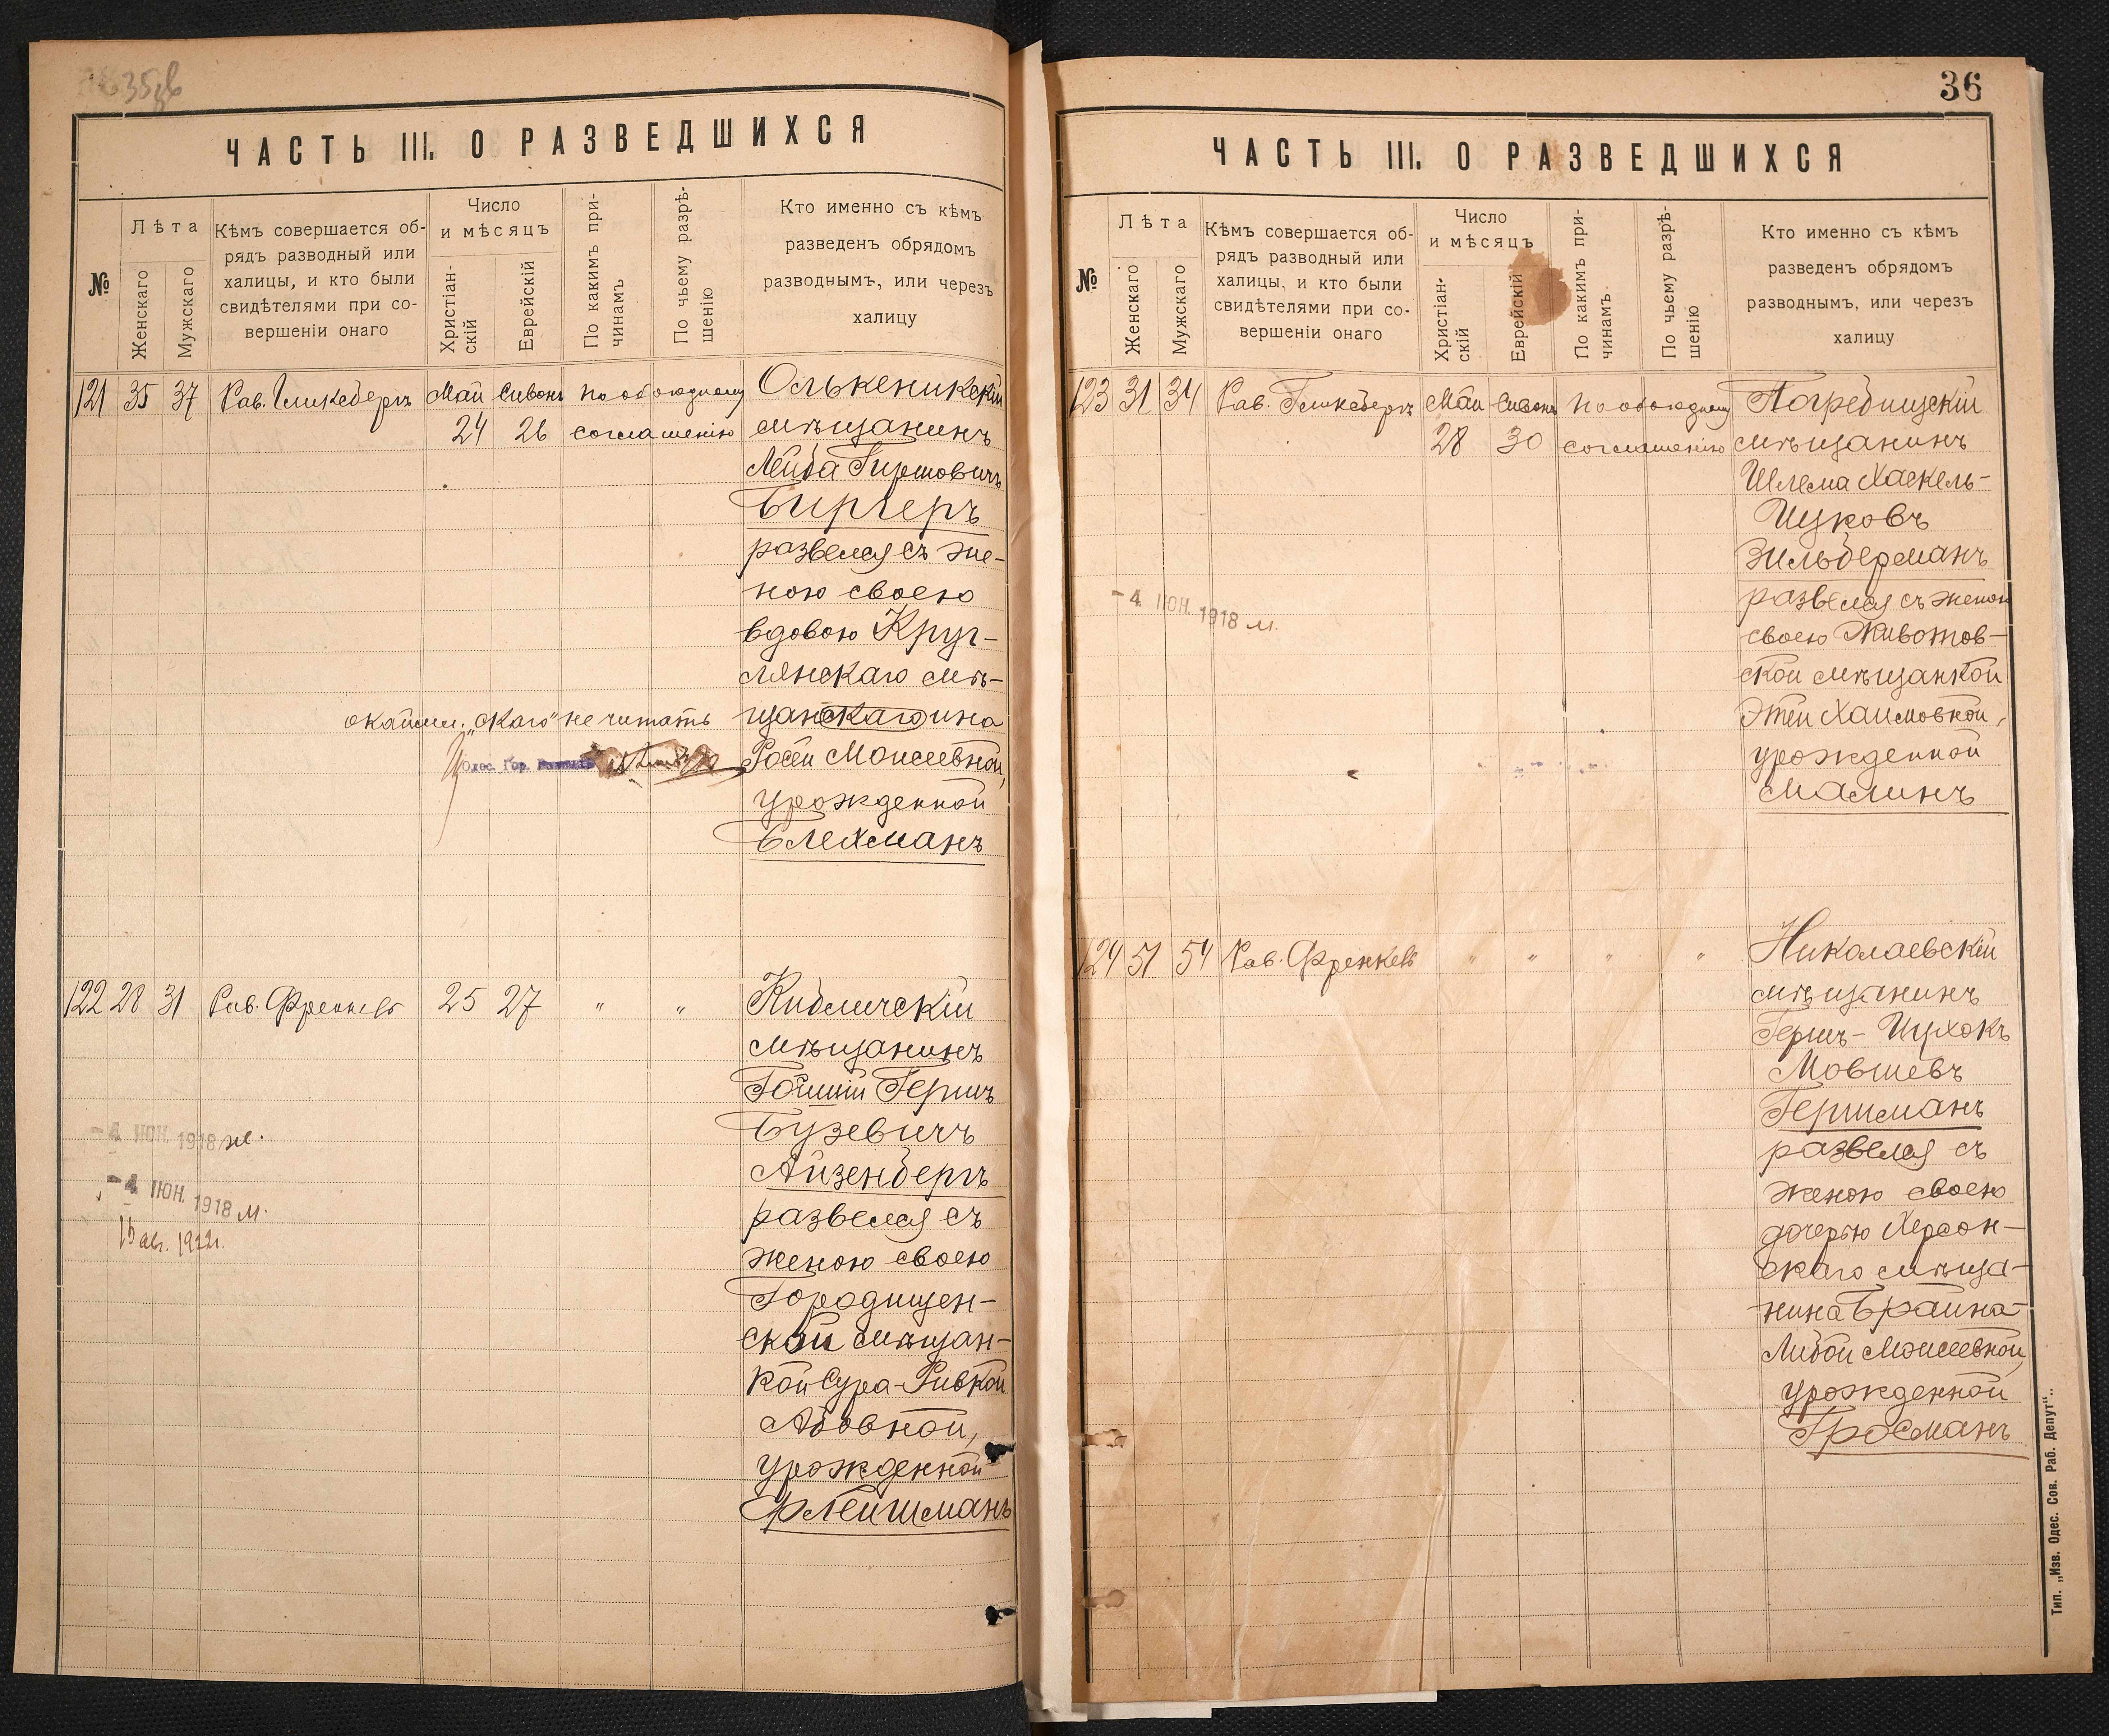 35об
ЧАСТЬ III. О РАЗВЕДШИХСЯ
№
Лѣта
Женскаго
Мужскаго
Кѣмъ совершается об-
рядъ разводный или
халицы, и кто были
свидѣтелями при со-
вершеніи онаго
Число
и мѣсяцъ
Христіан-
скій
Еврейскій
По какимъ при-
чинамъ
По чьему разрѣ-
шенію
Кто именно съ кѣмъ
разведенъ обрядомъ
разводнымъ, или черезъ
халицу
121 35 37 Рав. Гликсбергъ Май Сивонъ по обоюдному
24 26 соглашенію
Олькеникскій
мѣщанинъ
Лейба Гиршовичъ
Биргеръ
развелся съ же-
ною своею
вдовою Круг-
лянскаго мѣ-
щанскагоина
окаймл. „скаго" не читать
Росей Моисеевной,
Одес. Гор.
урожденной
Блехманъ
122 28 31 Рав. Френкель 25 27 " "
Кибличскій
мѣщанинъ
Герш
Бузевичъ
Айзенбергъ
развелся съ
женою своею
Городищен-
ской мѣщан-
кой Сура-Ривкой
Абовной,
урожденной
Флейшманъ
-4 ІЮН. 1918 ж.
-4 ІЮН. 1918 м.
15 авг. 1922г.
36
ЧАСТЬ III. О РАЗВЕДШИХСЯ
№
Лѣта
Женскаго
Мужскаго
Кѣмъ совершается об-
рядъ разводный или
халицы, и кто были
свидѣтелями при со-
вершеніи онаго
Число
и мѣсяцъ
Христіан-
скій
Еврейскій
По какимъ при-
чинамъ
По чьему разрѣ-
шенію
Кто именно съ кѣмъ
разведенъ обрядомъ
разводнымъ, или черезъ
халицу
123 31 34 Рав. Гликсбергъ Май Сивонъ по обоюдному
28 30 соглашенію
Погребищскій
мѣщанинъ
Шлема Хаскель-
Ицковъ
Зильберманъ
развелся съ женою
своею Животов-
ской мѣщанкой
Этей Хаимовной,
урожденной
Малинъ
-4 ІЮН. 1918 м.
124 51 54 Рав. Френкель " " " "
Николаевскій
мѣщанинъ
Гершъ-Ицхокъ
Мовшевъ
Гершманъ
развелся съ
женою своею
дочерью Херсон-
скаго мѣща-
нина Брайна-
Либой Моисеевной,
урожденной
Гросманъ
Тип. „Изв. Одес. Сов. Раб. Депут".